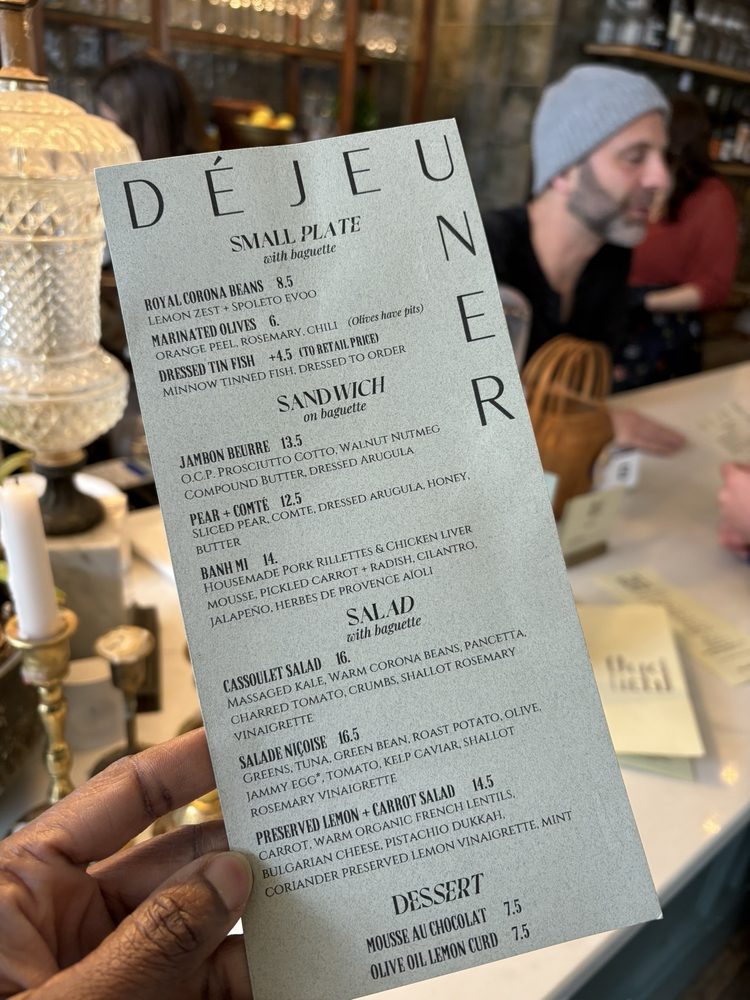 DÉJEUNER
SMALL PLATE
with baguette
ROYAL CORONA BEANS 8.5
LEMON ZEST + SPOLETO EVOO
MARINATED OLIVES 6.
ORANGE PEEL, ROSEMARY, CHILI (Olives have pits)
DRESSED TIN FISH +4.5 (TO RETAIL PRICE)
MINNOW TINNED FISH, DRESSED TO ORDER
SANDWICH
on baguette
JAMBON BEURRE 13.5
O.C.P. PROSCIUTTO COTTO, WALNUT NUTMEG
COMPOUND BUTTER, DRESSED ARUGULA
PEAR + COMTÉ 12.5
SLICED PEAR, COMTE, DRESSED ARUGULA, HONEY,
BUTTER
BANH MI 14.
HOUSEMADE PORK RILLETTES & CHICKEN LIVER
MOUSSE, PICKLED CARROT + RADISH, CILANTRO,
JALAPEÑO, HERBES DE PROVENCE AIOLI
SALAD
with baguette
CASSOULET SALAD 16.
MASSAGED KALE, WARM CORONA BEANS, PANCETTA,
CHARRED TOMATO, CRUMBS, SHALLOT ROSEMARY
VINAIGRETTE
SALADE NIÇOISE 16.5
GREENS, TUNA, GREEN BEAN, ROAST POTATO, OLIVE,
JAMMY EGG*, TOMATO, KELP CAVIAR, SHALLOT
ROSEMARY VINAIGRETTE
PRESERVED LEMON + CARROT SALAD 14.5
CARROT, WARM ORGANIC FRENCH LENTILS,
BULGARIAN CHEESE, PISTACHIO DUKKAH,
CORIANDER PRESERVED LEMON VINAIGRETTE, MINT
DESSERT
MOUSSE AU CHOCOLAT 7.5
OLIVE OIL LEMON CURD 7.5